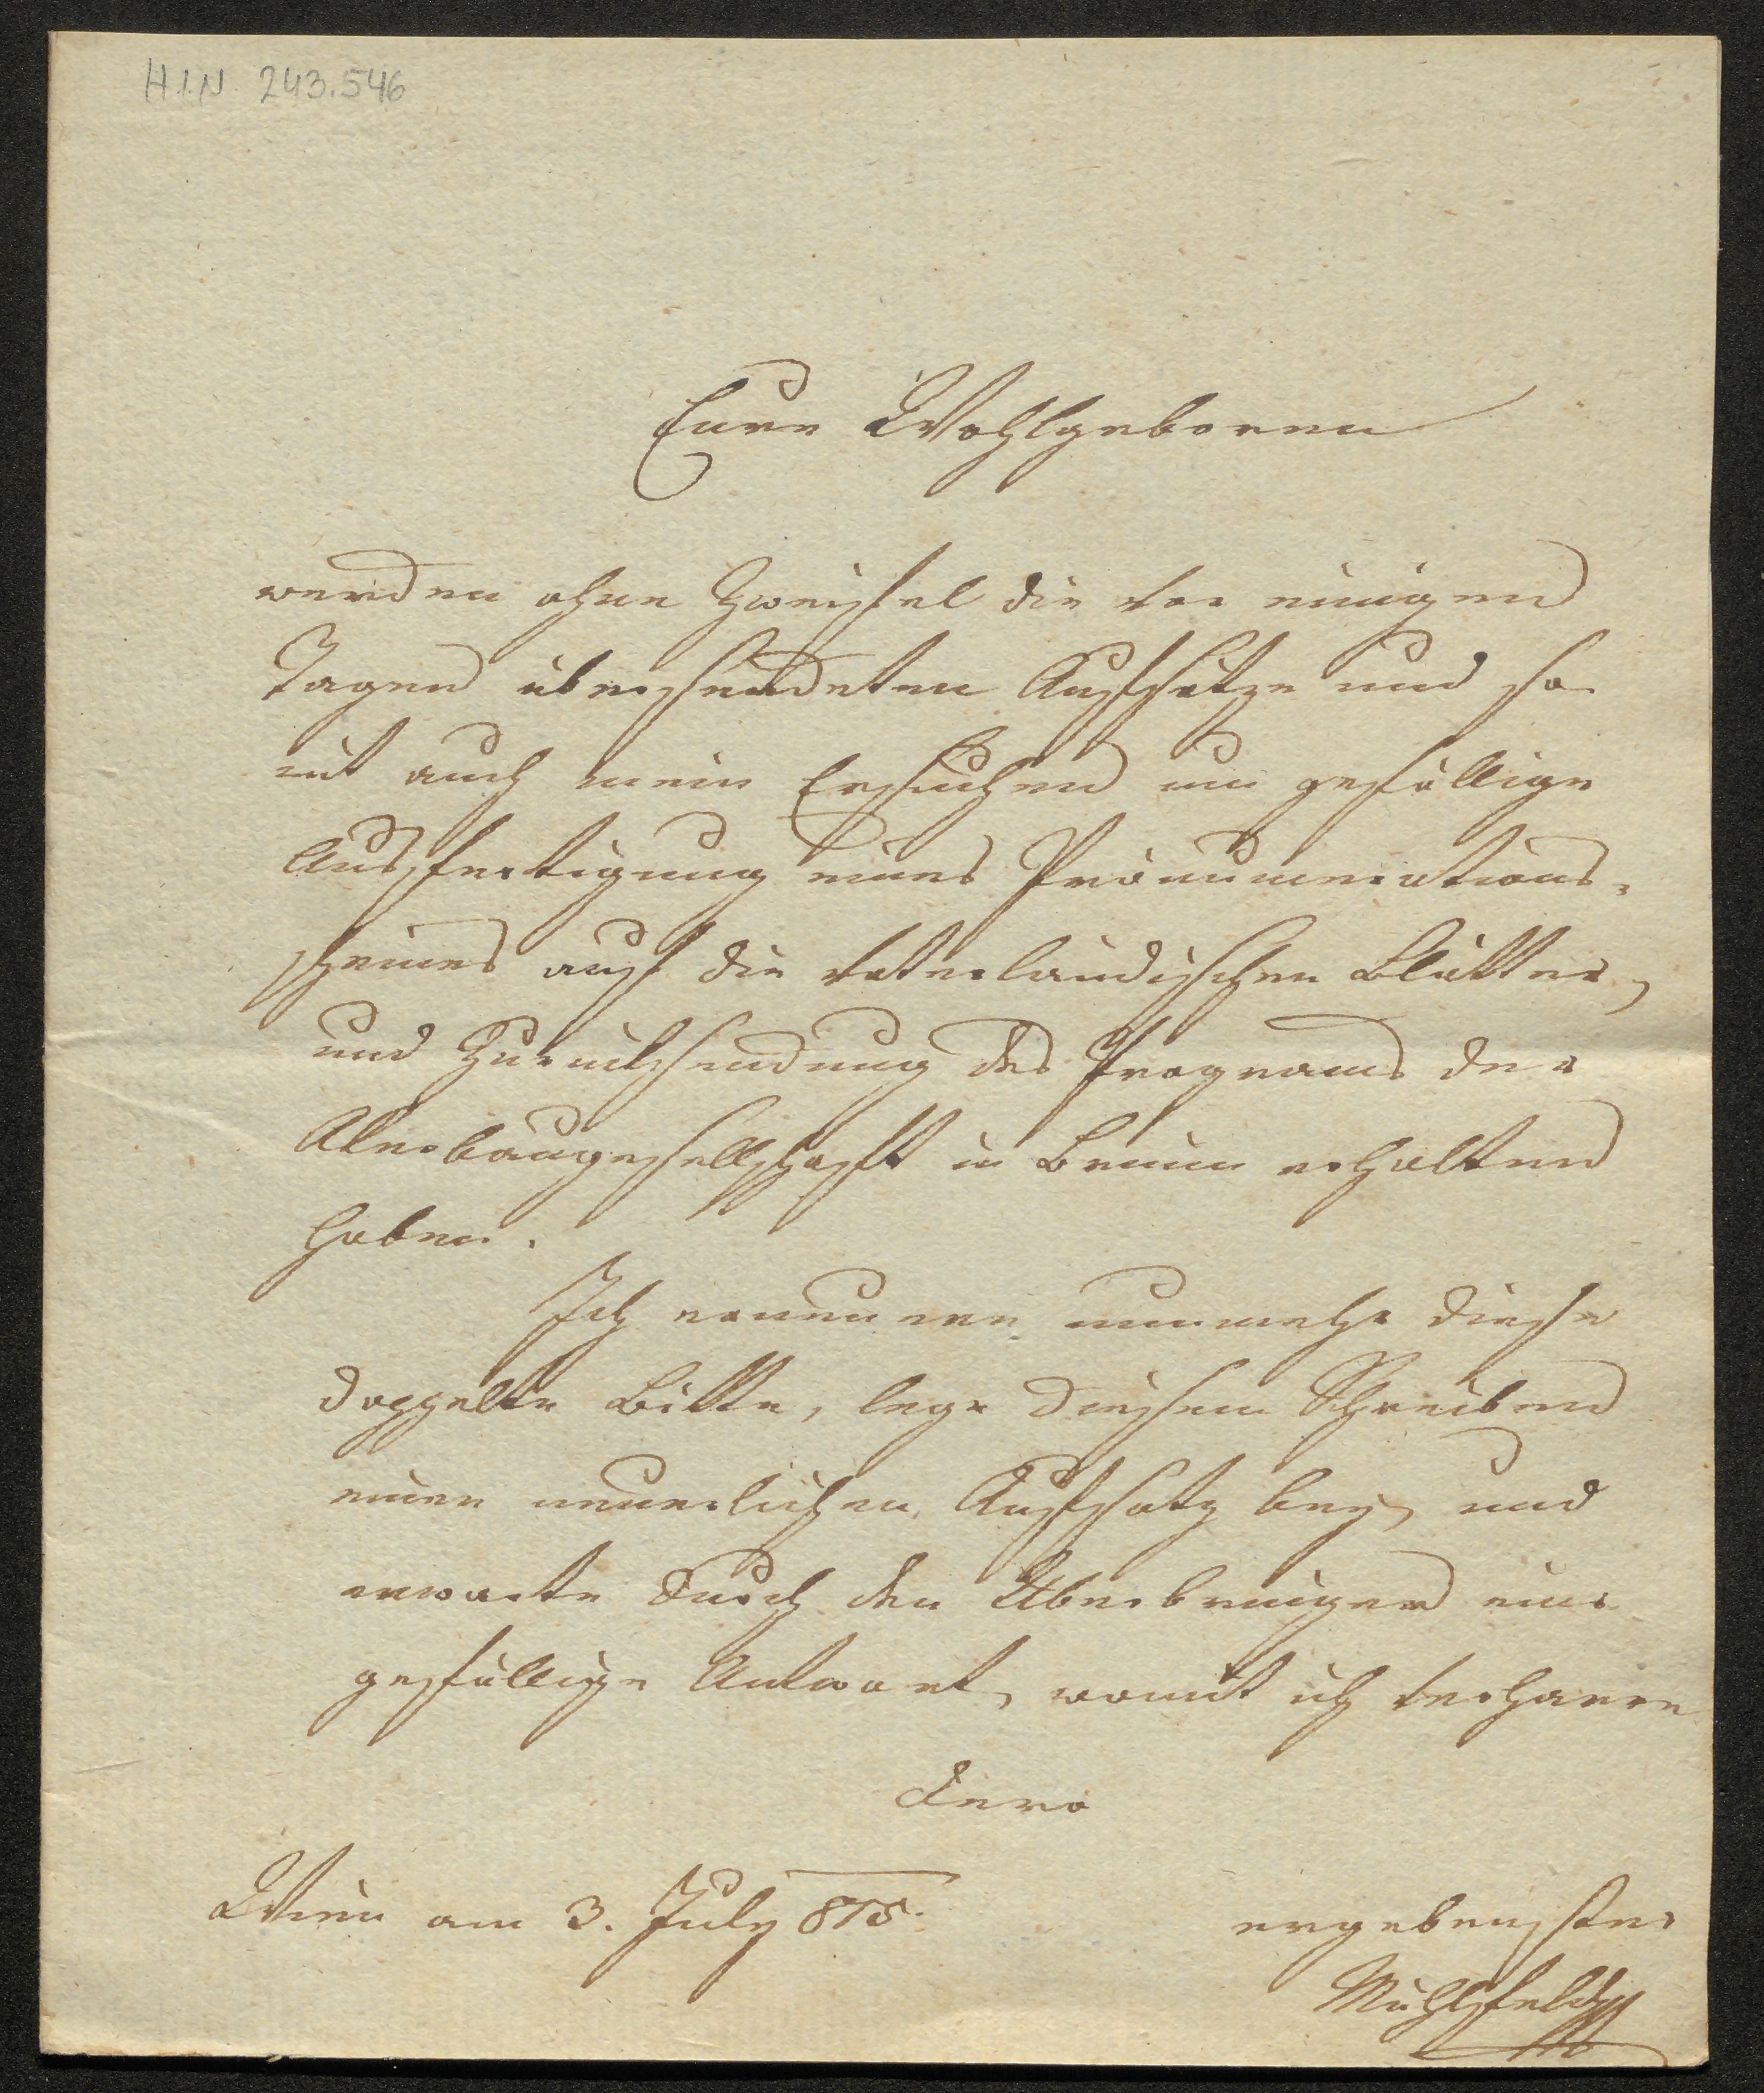 H.I.N. 243.546
Eure Wohlgeboren
werden ohne Zweifel die vor einigen
Tagen übersendeten Aufsätze und so
mit auch mein Ersuchen um gefällige
Ausfertigung eines Pränumerations-
scheines auf die vaterländischen Blätter,
und Zurücksendung des Programs der
Akerbaugesellschaft in Brünn erhalten
haben.
Ich erneuere nunmehr diese
doppelte Bitte, lege diesem Schreiben
einen neuerlichen Aufsatz bey, und
erwarte durch den Überbringer eine
gefällige Antwort, womit ich verharre
Dero
Wien am 3. July 815.
ergebenster
Mühlfeld